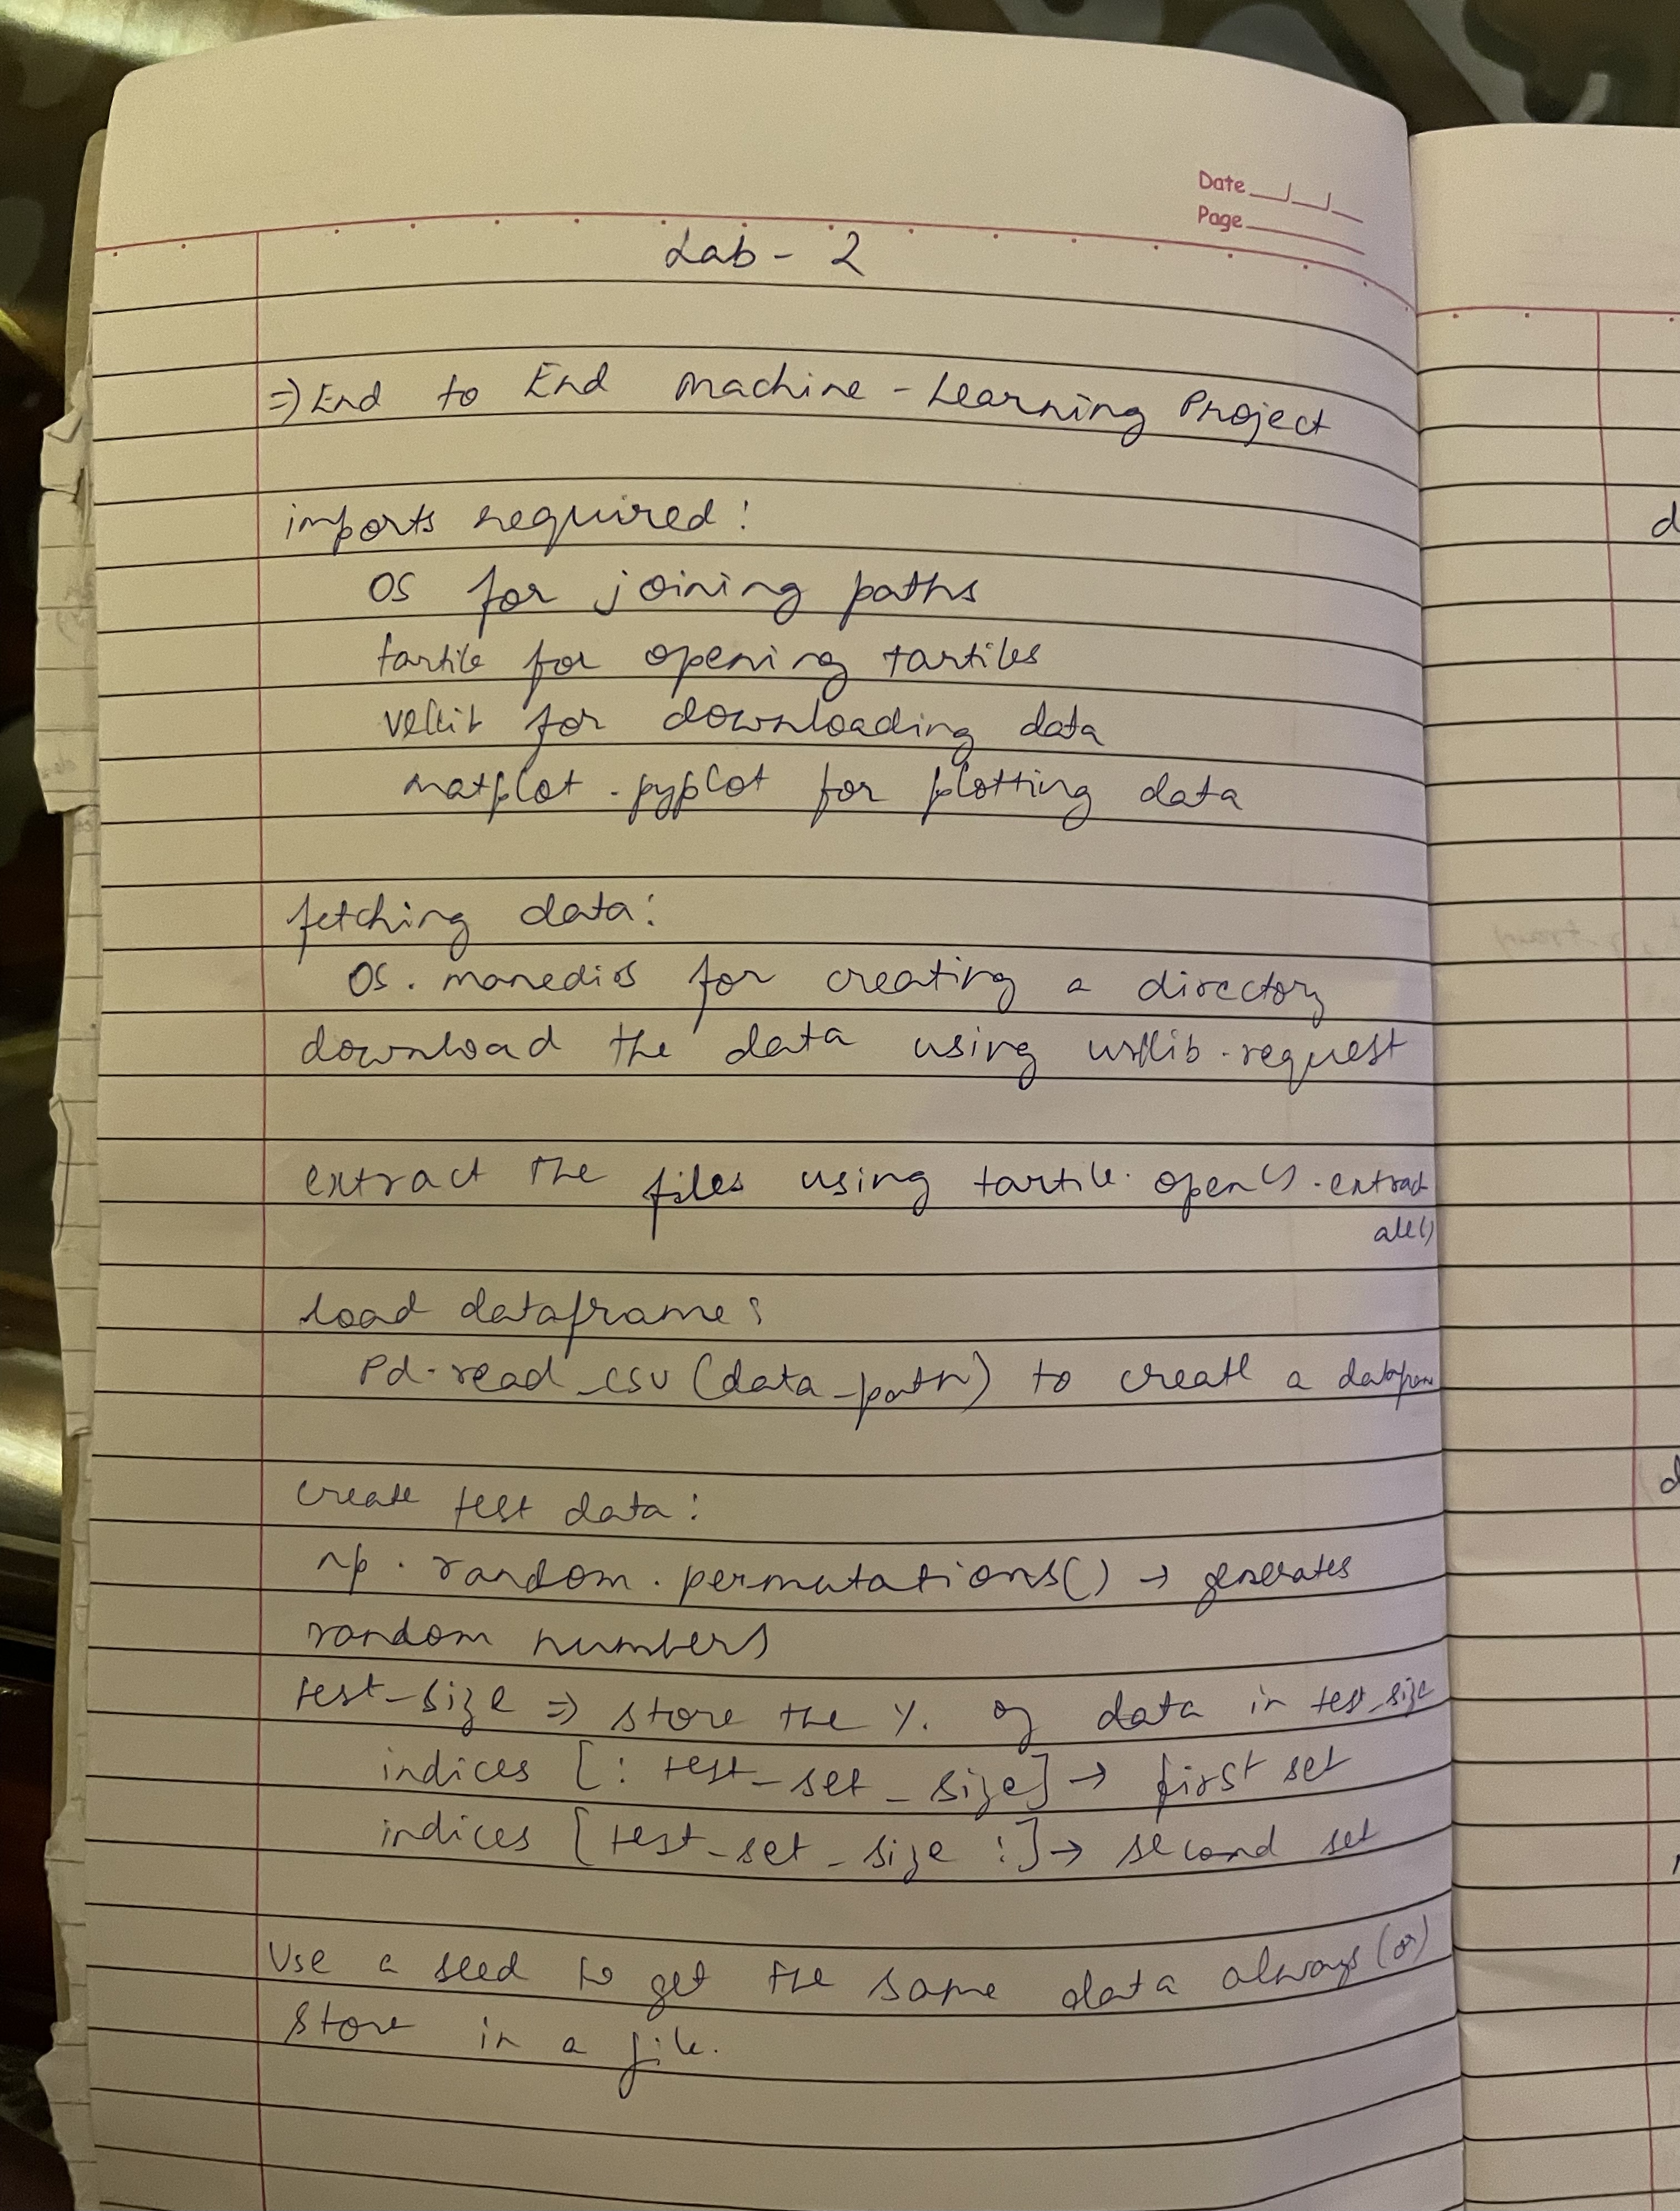 Date
Page
Lab - 2
=> End to End Machine - Learning Project
imports required :
OS for joining paths
tarfile for opening tarfiles
urllib for downloading data
matplot . pyplot for plotting data
fetching data :
OS . makedirs for creating a directory
download the data using urllib . request
extract the files using tarfile . open() . extract
all()
load dataframe :
Pd . read_csv (data_path) to create a dataframe
create test data :
np . random . permutations() → generates
random numbers
test_size => store the % of data in test_size
indices [ : test_set_size] → first set
indices [ test_set_size : ] → second set
Use a seed to get the same data always (or)
store in a file.
d
d